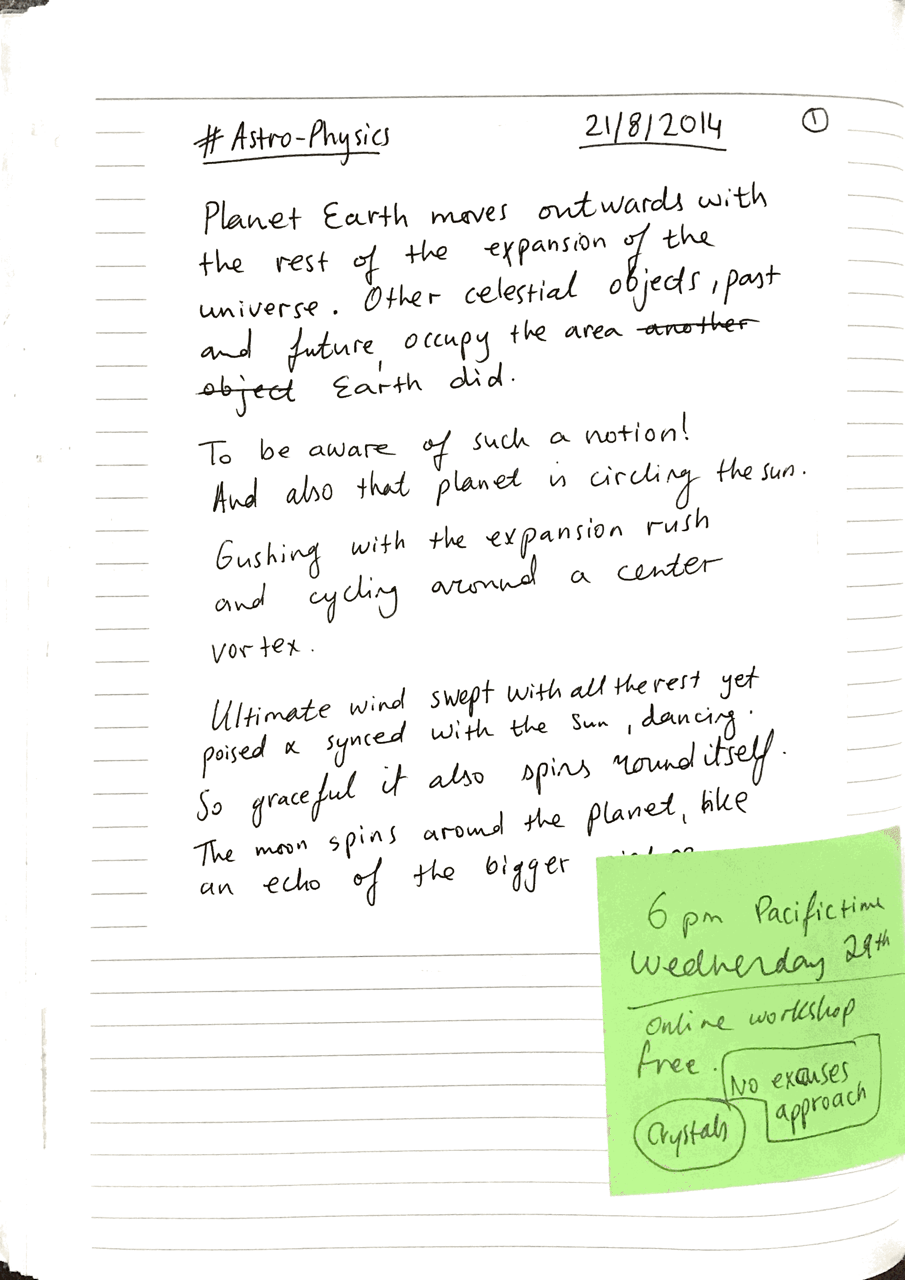 # Astro-Physics 21/8/2014 1
Planet Earth moves outwards with
the rest of the expansion of the
universe. Other celestial objects, past
and future, occupy the area another
object Earth did.
To be aware of such a notion!
And also that planet is circling the sun.
Gushing with the expansion rush
and cycling around a center
vortex.
Ultimate wind swept with all the rest yet
poised & synced with the sun, dancing.
So graceful it also spins round itself.
The moon spins around the planet, like
an echo of the bigger
6 pm Pacific time
Wednesday 29th
Online workshop
free.
No excuses
approach
Crystals